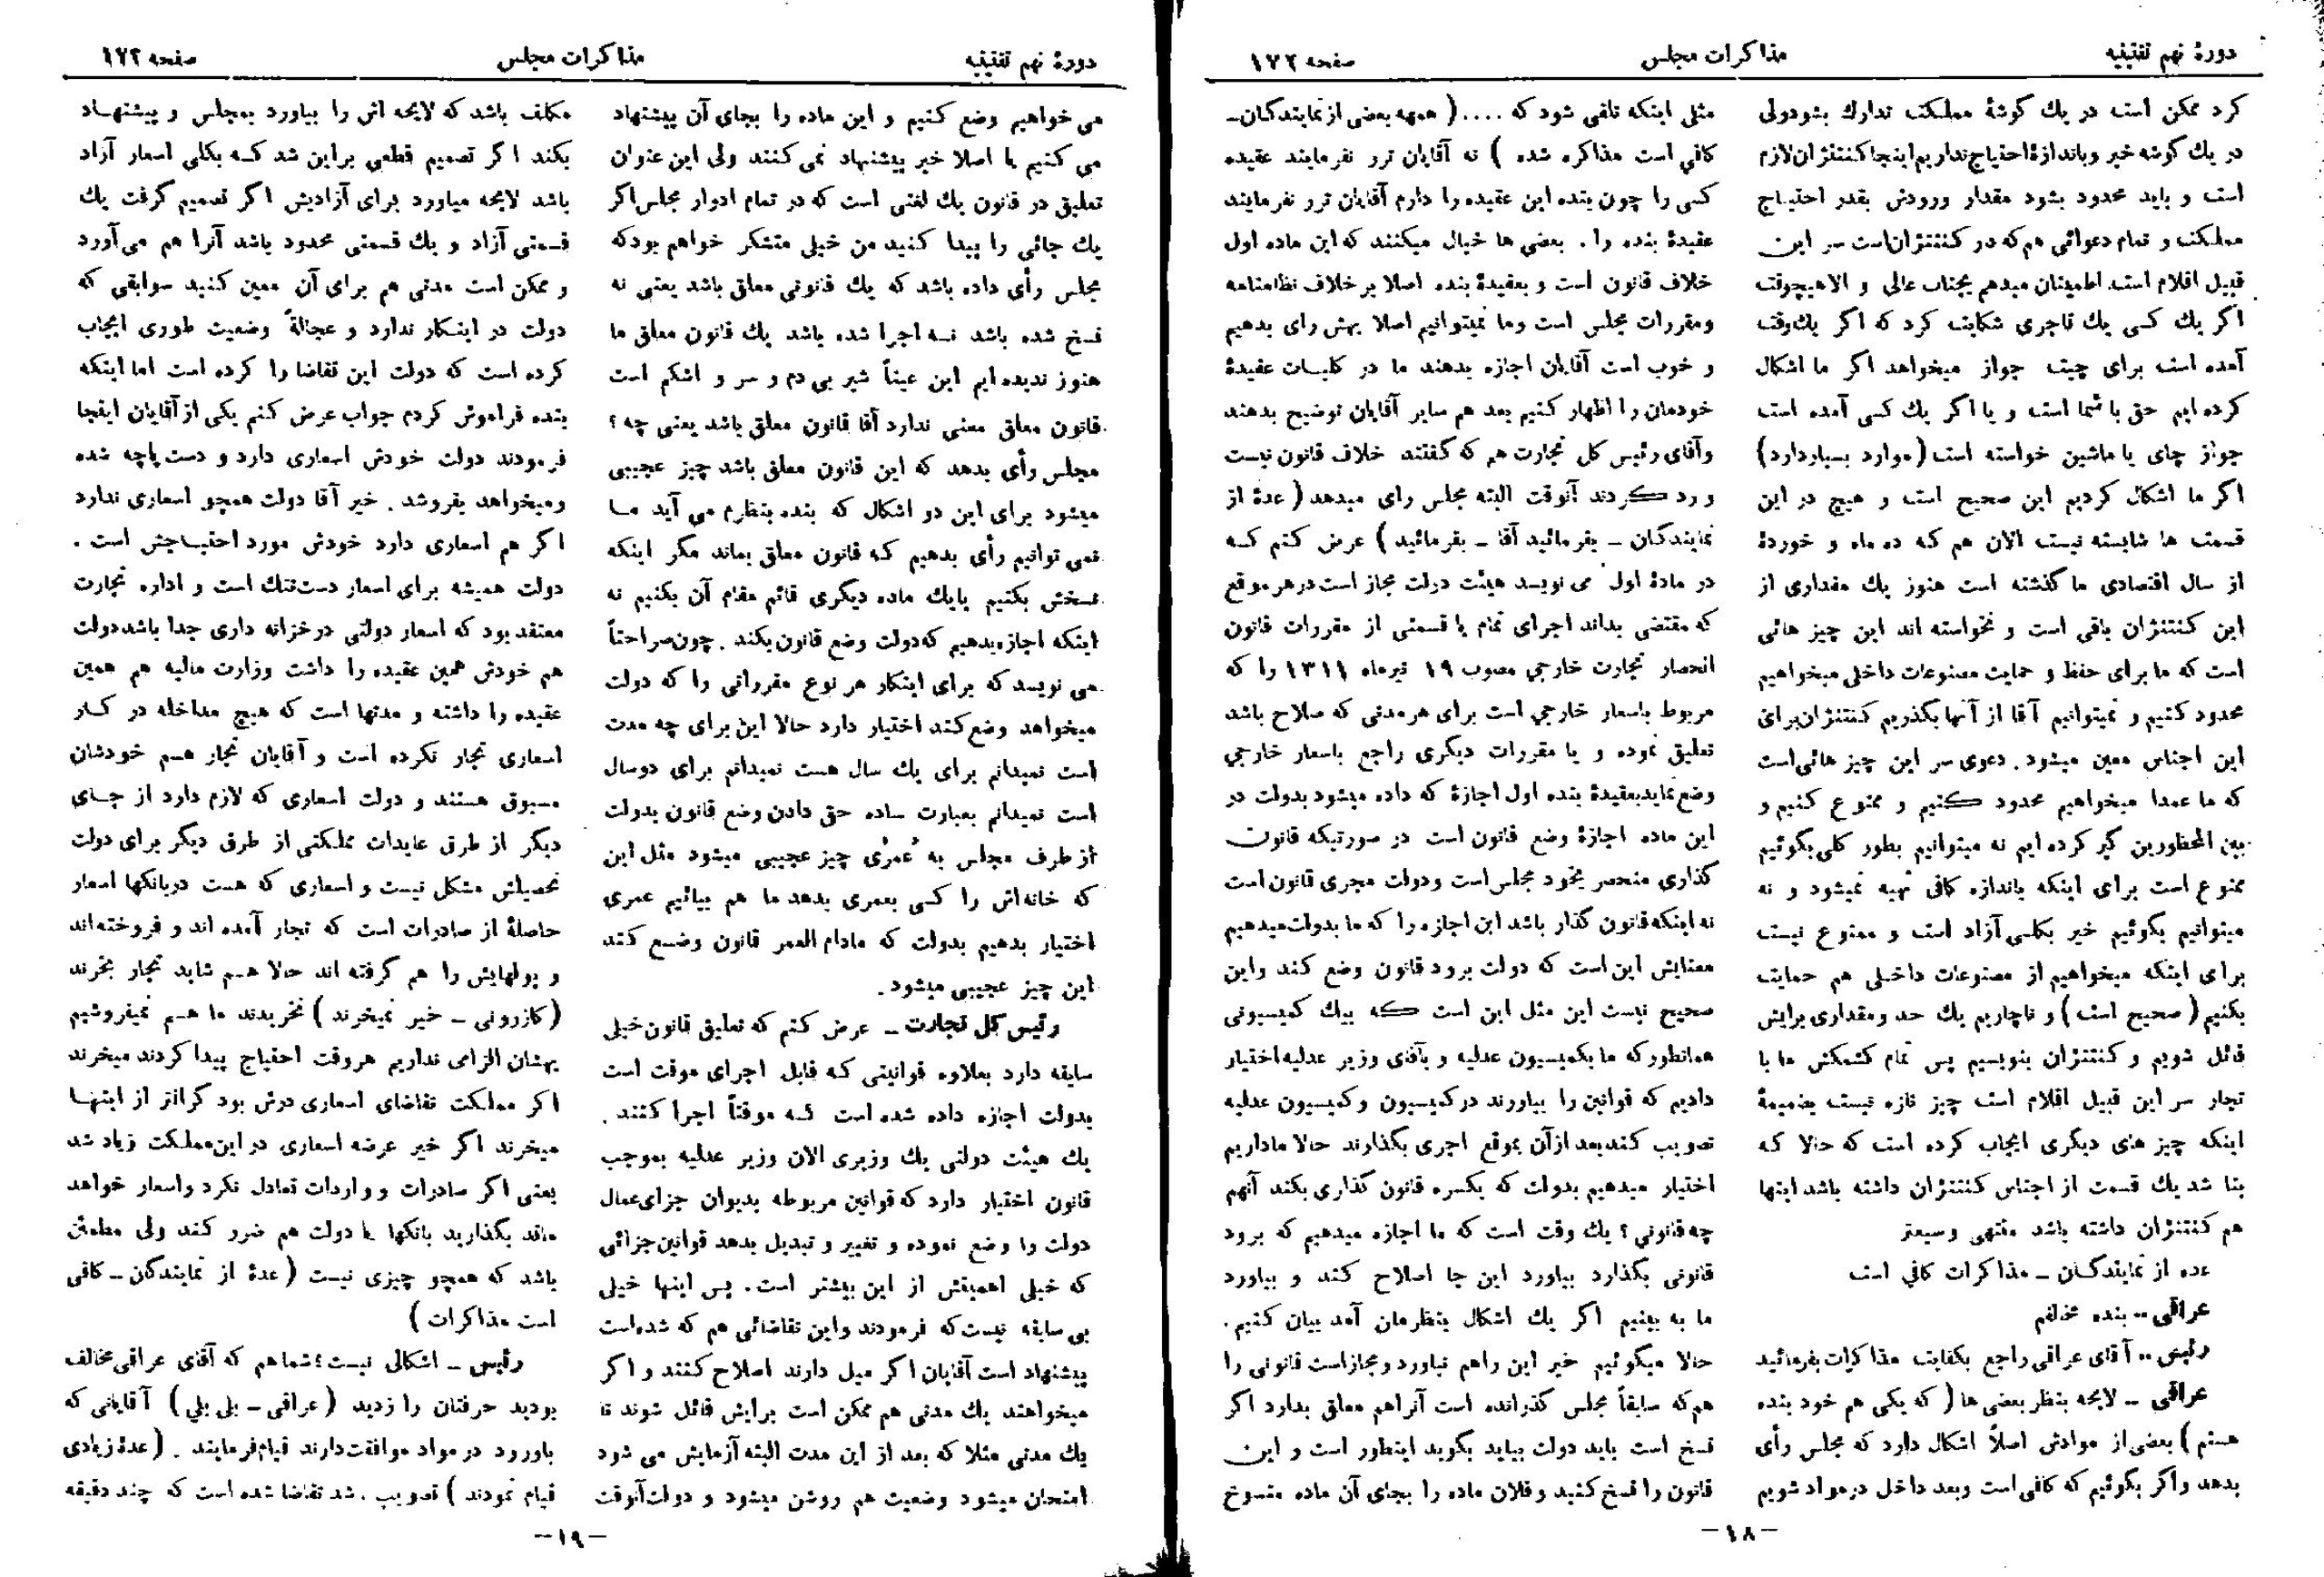 دورهٔ نهم تقنینیه
مذاکرات مجلس
صفحه ۱۷۲
کرد ممکن است در یك گوشهٔ مملکت تدارك بشود ولی
در یك گوشه خیر و باندازهٔ احتیاج نداریم اینجا کنتنژان لازم
است و باید محدود بشود مقدار ورودش بقدر احتیاج
مملکت و تمام دعوائی هم که در کنتنژان است سر این
قبیل اقلام است اطمینان میدهم بجناب عالی و الا هیچوقت
اگر یك کسی یك تاجری شکایت کرد که اگر یك وقت
آمده است برای چیت جواز میخواهد اگر ما اشکال
کرده ایم حق با شما است و یا اگر یك کسی آمده است
جواز چای یا ماشین خواسته است (موارد بسیار دارد)
اگر ما اشکال کردیم این صحیح است و هیچ در این
قسمت ها شایسته نیست الان هم که ده ماه و خوردهٔ
از سال اقتصادی ما گذشته است هنوز یك مقداری از
این کنتنژان باقی است و نخواسته اند این چیز هائی
است که ما برای حفظ و حمایت مصنوعات داخلی میخواهیم
محدود کنیم و نمیتوانیم آقا از آنها بگذریم کنتنژان برای
این اجناس معین میشود. دعوی سر این چیز هائی است
که ما عمدا میخواهیم محدود کنیم و ممنوع کنیم و
بین المحظورین گیر کرده ایم نه میتوانیم بطور کلی بگوئیم
ممنوع است برای اینکه باندازه کافی تهیه نمیشود و نه
میتوانیم بگوئیم خیر بکلی آزاد است و ممنوع نیست
برای اینکه میخواهیم از مصنوعات داخلی هم حمایت
بکنیم (صحیح است) و ناچاریم یك حد و مقداری برایش
قائل شویم و کنتنژان بنویسیم پس تمام کشمکش ما با
تجار سر این قبیل اقلام است چیز تازه نیست بضمیمهٔ
اینکه چیز های دیگری ایجاب کرده است که حالا که
بنا شد یك قسمت از اجناس کنتنژان داشته باشد اینها
هم کنتنژان داشته باشد منتهی وسیعتر
عده از نمایندگان ـ مذاکرات کافی است
عراقی ـ بنده مخالفم
رئیس ـ آقای عراقی راجع بکفایت مذاکرات بفرمائید
عراقی ـ لایحه بنظر بعضی ها (که یکی هم خود بنده
هستم) بعضی از موادش اصلاً اشکال دارد که مجلس رأی
بدهد و اگر بگوئیم که کافی است و بعد داخل در مواد شویم
مثل اینکه تلقی شود که .... (همهمه بعضی از نمایندگان ـ
کافی است مذاکره شده) نه آقایان ترر نفرمایند عقیده
کسی را چون بنده این عقیده را دارم آقایان ترر نفرمایند
عقیدهٔ بنده را. بعضی ها خیال میکنند که این ماده اول
خلاف قانون است و بعقیدهٔ بنده اصلا بر خلاف نظامنامه
و مقررات مجلس است و ما نمیتوانیم اصلا بهش رای بدهیم
و خوب است آقایان اجازه بدهند ما در کلیات عقیدهٔ
خودمان را اظهار کنیم بعد هم سایر آقایان توضیح بدهند
و آقای رئیس کل تجارت هم که گفتند خلاف قانون نیست
و رد کردند آنوقت البته مجلس رای میدهد (عدهٔ از
نمایندگان ـ بفرمائید آقا ـ بفرمائید) عرض کنم که
در مادهٔ اول می نویسد هیئت دولت مجاز است در هر موقع
که مقتضی بداند اجرای تمام یا قسمتی از مقررات قانون
انحصار تجارت خارجی مصوب ۱۹ تیرماه ۱۳۱۱ را که
مربوط باسعار خارجی است برای هر مدتی که صلاح باشد
تعلیق نموده و یا مقررات دیگری راجع باسعار خارجی
وضع نماید بعقیدهٔ بنده اول اجازهٔ که داده میشود بدولت در
این ماده اجازهٔ وضع قانون است در صورتیکه قانون
گذاری منحصر بخود مجلس است و دولت مجری قانون است
نه اینکه قانون گذار باشد این اجازه را که ما بدولت میدهیم
معنایش این است که دولت برود قانون وضع کند و این
صحیح نیست این مثل این است که بیك کمیسیونی
همانطور که ما بکمیسیون عدلیه و بآقای وزیر عدلیه اختیار
دادیم که قوانین را بیاورند در کمیسیون و کمیسیون عدلیه
تصویب کند بعد از آن بموقع اجری بگذارند حالا ما داریم
اختیار میدهیم بدولت که یکسره قانون گذاری بکند آنهم
چه قانونی؟ یك وقت است که ما اجازه میدهیم که برود
قانونی بگذارد بیاورد این جا اصلاح کند و بیاورد
ما به بینیم اگر یك اشکال بنظرمان آمد بیان کنیم.
حالا میگوئیم خیر این را هم نیاورد و مجاز است قانونی را
هم که سابقاً مجلس گذرانده است آنرا هم معلق بدارد اگر
فسخ است باید دولت بیاید بگوید اینطور است و این
قانون را فسخ کنید و فلان ماده را بجای آن ماده منسوخ
ـ۱۸ـ
دورهٔ نهم تقنینیه
مذاکرات مجلس
صفحه ۱۷۲
می خواهیم وضع کنیم و این ماده را بجای آن پیشنهاد
می کنیم یا اصلا خیر پیشنهاد نمی کنند ولی این عنوان
تعلیق در قانون یك لغتی است که در تمام ادوار مجلس اگر
یك جائی را پیدا کنید من خیلی متشکر خواهم بود که
مجلس رأی داده باشد که یك قانونی معلق باشد یعنی نه
فسخ شده باشد نه اجرا شده باشد یك قانون معلق ما
هنوز ندیده ایم این عیناً شیر بی دم و سر و اشکم است
قانون معلق معنی ندارد آقا قانون معلق باشد یعنی چه؟
مجلس رأی بدهد که این قانون معلق باشد چیز عجیبی
میشود برای این دو اشکال که بنده بنظرم می آید ما
نمی توانیم رأی بدهیم که قانون معلق بماند مگر اینکه
فسخش بکنیم یا یك ماده دیگری قائم مقام آن بکنیم نه
اینکه اجازه بدهیم که دولت وضع قانون بکند. چون صراحتاً
می نویسد که برای اینکار هر نوع مقرراتی را که دولت
میخواهد وضع کند اختیار دارد حالا این برای چه مدت
است نمیدانم برای یك سال هست نمیدانم برای دو سال
است نمیدانم بعبارت ساده حق دادن وضع قانون بدولت
از طرف مجلس به عُمرْی چیز عجیبی میشود مثل این
که خانه اش را کسی بعمری بدهد ما هم بیائیم عمری
اختیار بدهیم بدولت که مادام العمر قانون وضع کند
این چیز عجیبی میشود.
رئیس کل تجارت ـ عرض کنم که تعلیق قانون خیلی
سابقه دارد بعلاوه قوانینی که قابل اجرای موقت است
بدولت اجازه داده شده است که موقتاً اجرا کنند.
یك هیئت دولتی یك وزیری الان وزیر عدلیه بموجب
قانون اختیار دارد که قوانین مربوطه بدیوان جزای عمال
دولت را وضع نموده و تغییر و تبدیل بدهد قوانین جزائی
که خیلی اهمیتش از این بیشتر است. پس اینها خیلی
بی سابقه نیست که فرمودند و این تقاضائی هم که شده است
پیشنهاد است آقایان اگر میل دارند اصلاح کنند و اگر
میخواهند یك مدتی هم ممکن است برایش قائل شوند تا
یك مدتی مثلا که بعد از این مدت البته آزمایش می شود
امتحان میشود وضعیت هم روشن میشود و دولت آنوقت
مکلف باشد که لایحه اش را بیاورد بمجلس و پیشنهاد
بکند اگر تصمیم قطعی بر این شد که بکلی اسعار آزاد
باشد لایحه میاورد برای آزادیش اگر تصمیم گرفت یك
قسمتی آزاد و یك قسمتی محدود باشد آنرا هم می آورد
و ممکن است مدتی هم برای آن معین کنید سوابقی که
دولت در اینکار ندارد و عجالةً وضعیت طوری ایجاب
کرده است که دولت این تقاضا را کرده است اما اینکه
بنده فراموش کردم جواب عرض کنم یکی از آقایان اینجا
فرمودند دولت خودش اسعاری دارد و دست پاچه شده
و میخواهد بفروشد. خیر آقا دولت همچو اسعاری ندارد
اگر هم اسعاری دارد خودش مورد احتیاجش است.
دولت همیشه برای اسعار دست تنگ است و اداره تجارت
معتقد بود که اسعار دولتی در خزانه داری جدا باشد دولت
هم خودش همین عقیده را داشت وزارت مالیه هم همین
عقیده را داشته و مدتها است که هیچ مداخله در کار
اسعاری تجار نکرده است و آقایان تجار هم خودشان
مسبوق هستند و دولت اسعاری که لازم دارد از جای
دیگر از طرق عایدات مملکتی از طرق دیگر برای دولت
تحصیلش مشکل نیست و اسعاری که هست در بانکها اسعار
حاصلهٔ از صادرات است که تجار آمده اند و فروخته اند
و پولهایش را هم گرفته اند حالا هم شاید تجار بخرند
(کازرونی ـ خیر نمیخرند) نخریدند ما هم نمیفروشیم
بهشان الزامی نداریم هر وقت احتیاج پیدا کردند میخرند
اگر مملکت تقاضای اسعاری درش بود گرانتر از اینها
میخرند اگر خیر عرضه اسعاری در این مملکت زیاد شد
یعنی اگر صادرات و واردات تعادل نکرد و اسعار خواهد
ماند بگذارید بانکها یا دولت هم ضرر کند ولی مطمئن
باشد که همچو چیزی نیست (عدهٔ از نمایندگان ـ کافی
است مذاکرات)
رئیس ـ اشکالی نیست؛ شما هم که آقای عراقی مخالف
بودید حرفتان را زدید (عراقی ـ بلی بلی) آقایانی که
با ورود در مواد موافقت دارند قیام فرمایند. (عدهٔ زیادی
قیام نمودند) تصویب شد تقاضا شده است که چند دقیقه
ـ۱۹ـ